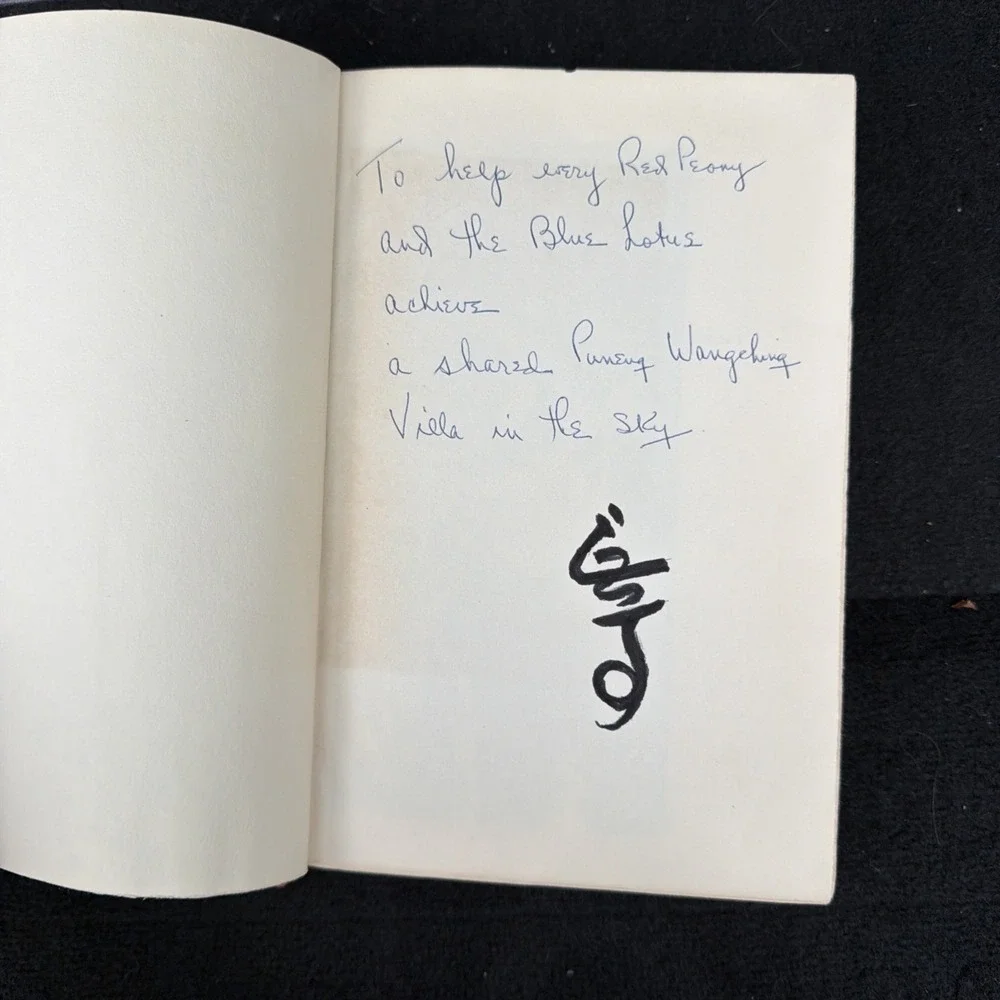 To help every Red Peony
and the Blue Lotus
achieve
a shared Puneuq Wangching
Villa in the Sky.